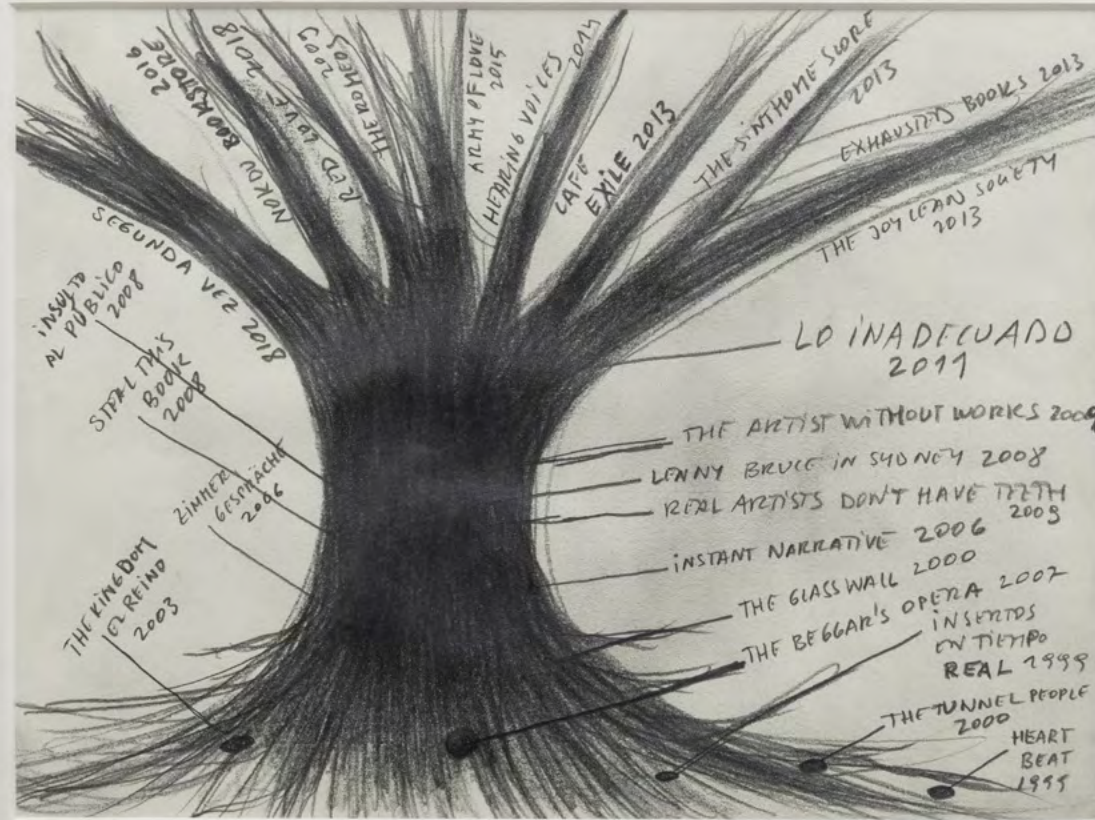 NOKOV BOOKSTORE
2016
RED LOVE 2018
THE ROMEOS
ARMY OF LOVE
2015
HEARING VOICES
CAFE 2014
EXILE 2013
THE SINTHOME SCORE
2013
EXHAUSTED BOOKS 2013
THE JOYCEAN SOCIETY
2013
SEGUNDA VEZ 2018
INSULTO
AL PÚBLICO
2008
STEAL THIS
BOOK
2008
ZIMMER
GESPRÄCHE
2006
THE KINGDOM
EL REINO
2003
LO INADECUADO
2011
THE ARTIST WITHOUT WORKS 2009
LENNY BRUCE IN SYDNEY 2008
REAL ARTISTS DON'T HAVE TEETH
2009
INSTANT NARRATIVE 2006
THE GLASS WALL 2000
THE BEGGAR'S OPERA 2007
INSERTOS
EN TIEMPO
REAL 1999
THE TUNNEL PEOPLE
2000
HEART
BEAT
1999